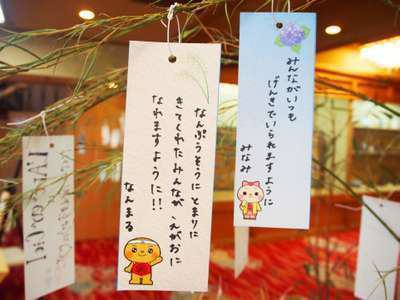 なんぷうそうに とまりに
きてくれたみんなが えがおに
なれますように!!
なんまる
みんながいつも
げんきでいられますように
みなみ